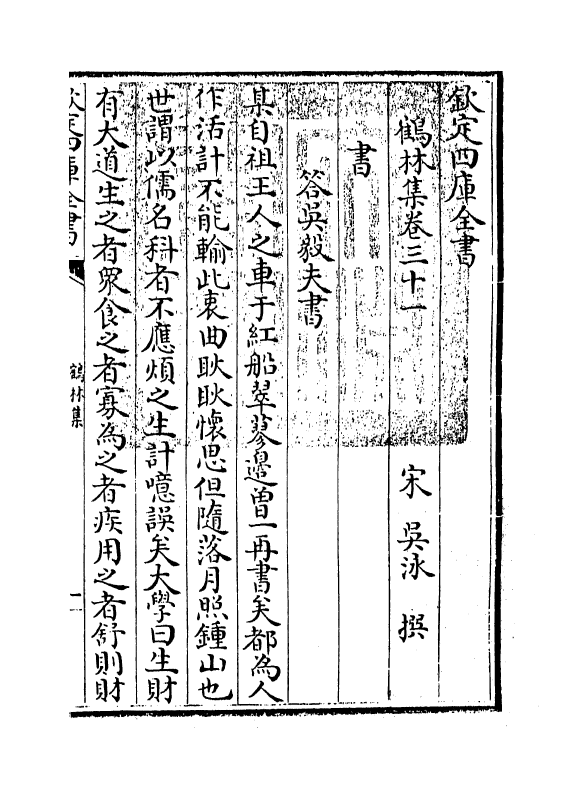 欽定四庫全書
鶴林集卷三十一
宋 吳泳 撰
書
答吳毅夫書
某自祖王人之車于紅船翠蓼邊曾一再書矣都為人
作活計不能輸此衷曲耿耿懷思但隨落月照鍾山也
世謂以儒名科者不應煩之生計噫誤矣大學曰生財
有大道生之者衆食之者寡為之者疾用之者舒則財
欽定四庫全書
鶴林集
一